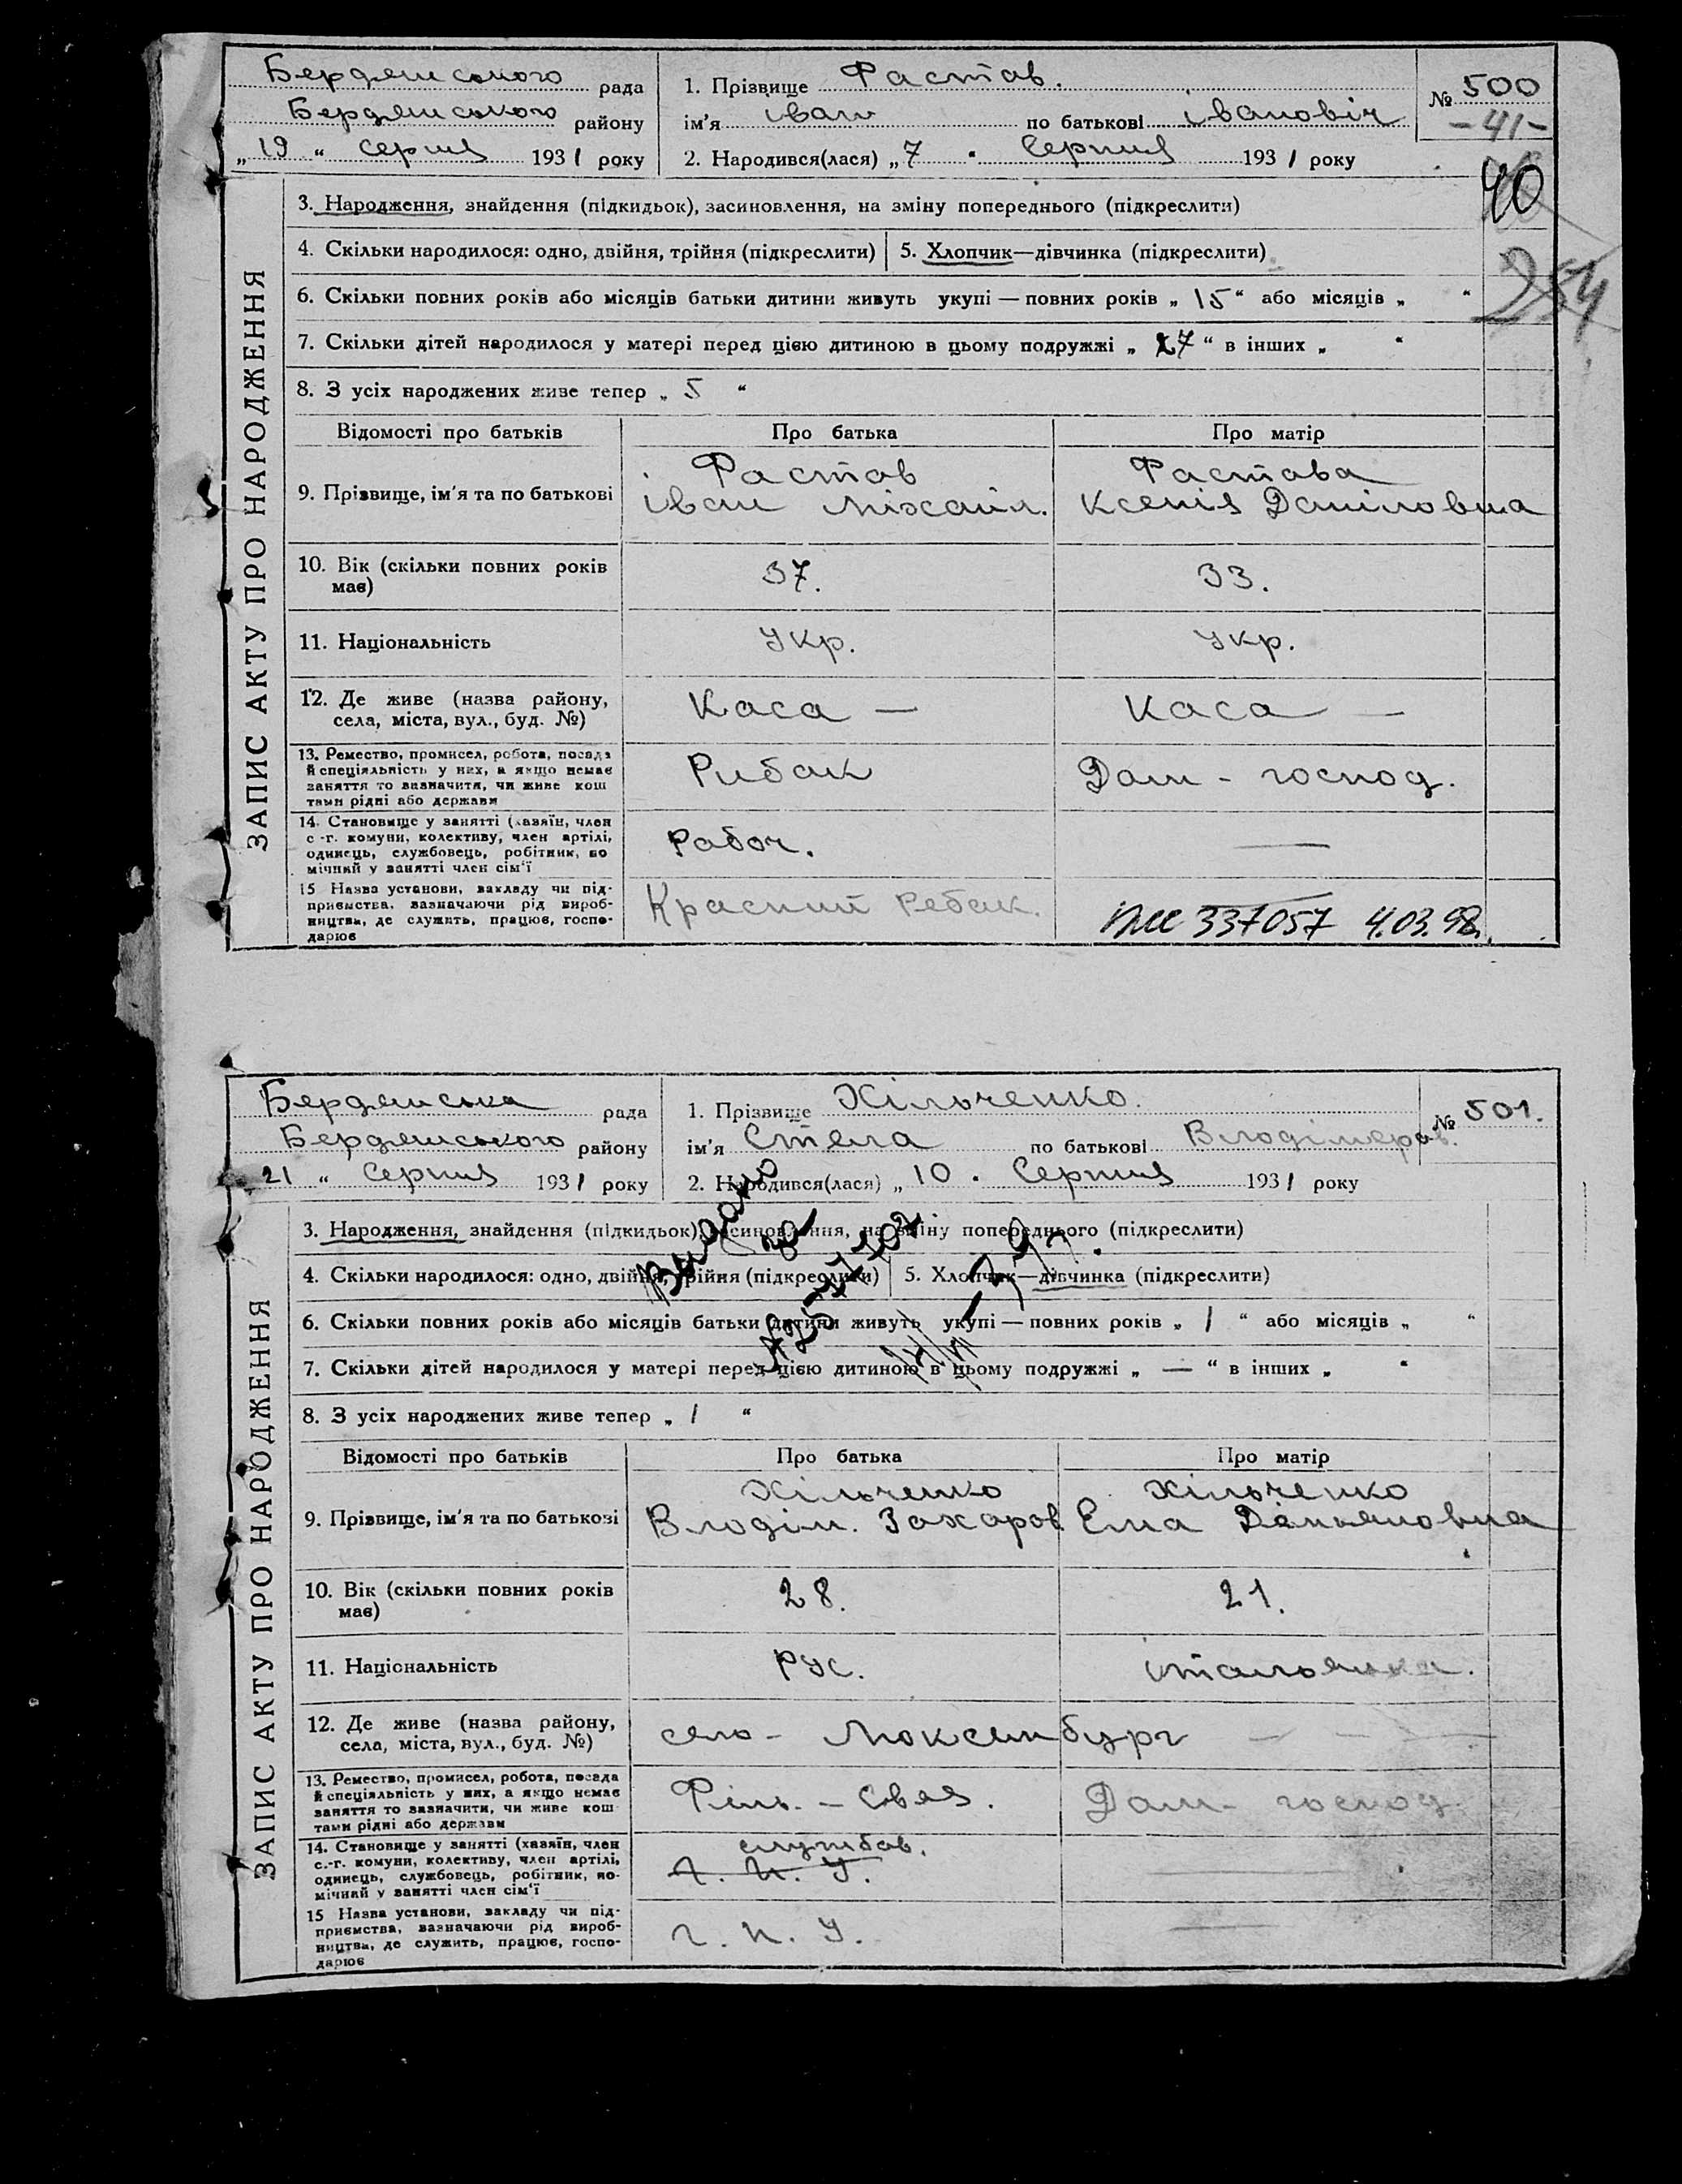 Бердянського рада
Бердянського району
„ 19 “ серпня 1931 року
1. Прізвище Фастов.
ім'я іван по батькові івановіч
2. Народився(лася) „ 7 “ Серпня 1931 року
№ 500
-41-
40
ЗАПИС АКТУ ПРО НАРОДЖЕННЯ
3. Народження, знайдення (підкидьок), засиновлення, на зміну попереднього (підкреслити)
4. Скільки народилося: одно, двійня, трійня (підкреслити) 5. Хлопчик—дівчинка (підкреслити)
6. Скільки повних років або місяців батьки дитини живуть укупі — повних років „ 15 “ або місяців „ “
7. Скільки дітей народилося у матері перед цією дитиною в цьому подружжі „ 7 “ в інших „ “
8. З усіх народжених живе тепер „ 5 “
Відомості про батьків Про батька Про матір
9. Прізвище, ім'я та по батькові
Фастов
іван Міхайл.
Фастова
Ксенія Даніловна
10. Вік (скільки повних років має) 37. 33.
11. Національність Укр. Укр.
12. Де живе (назва району, села, міста, вул., буд. №)
Каса — Каса —
13. Ремество, промисел, робота, посада
й спеціяльність у них, а якщо немає
заняття то зазначити, чи живе кош
тами рідні або держави
Рибак Дом - господ.
14. Становище у занятті (хазяїн, член
с.-г. комуни, колективу, член артілі,
одинець, службовець, робітник, по
мічний у занятті член сім'ї
Рабоч. —
15 Назва установи, закладу чи під-
приємства, зазначаючи рід вироб-
ництва, де служить, працює, госпо-
дарює
Красний Ребак.
337057 4.03.98.
Бердянська рада
Бердянського району
21 “ Серпня 1931 року
1. Прізвище Хільченко.
ім'я Стела по батькові Влодімеров.
2. Народився(лася) „ 10 . Серпня 1931 року
№ 501.
ЗАПИС АКТУ ПРО НАРОДЖЕННЯ
3. Народження, знайдення (підкидьок), засиновлення, на зміну попереднього (підкреслити)
4. Скільки народилося: одно, двійня, трійня (підкреслити) 5. Хлопчик—дівчинка (підкреслити)
6. Скільки повних років або місяців батьки дитини живуть укупі — повних років „ 1 “ або місяців „ “
7. Скільки дітей народилося у матері перед цією дитиною в цьому подружжі „ — “ в інших „ “
8. З усіх народжених живе тепер „ 1 “
Відомості про батьків Про батька Про матір
9. Прізвище, ім'я та по батькові
Хільченко
Влодім. Захаров
Хільченко
Ема Демьяновна
10. Вік (скільки повних років має) 28. 21.
11. Національність Рус. італьянка.
12. Де живе (назва району, села, міста, вул., буд. №)
село - Люксембург — — —
13. Ремество, промисел, робота, посада
й спеціяльність у них, а якщо немає
заняття то зазначити, чи живе кош
тами рідні або держави
Дом - господ.
14. Становище у занятті (хазяїн, член
с.-г. комуни, колективу, член артілі,
одинець, службовець, робітник, по-
мічний у занятті член сім'ї
службов.
Г. П. У.
15 Назва установи, закладу чи під-
приємства, зазначаючи рід вироб-
ництва, де служить, працює, госпо-
дарює
Г. П. У. —